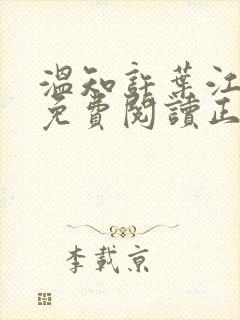 溫知許葉江
免費閱讀正
李載京